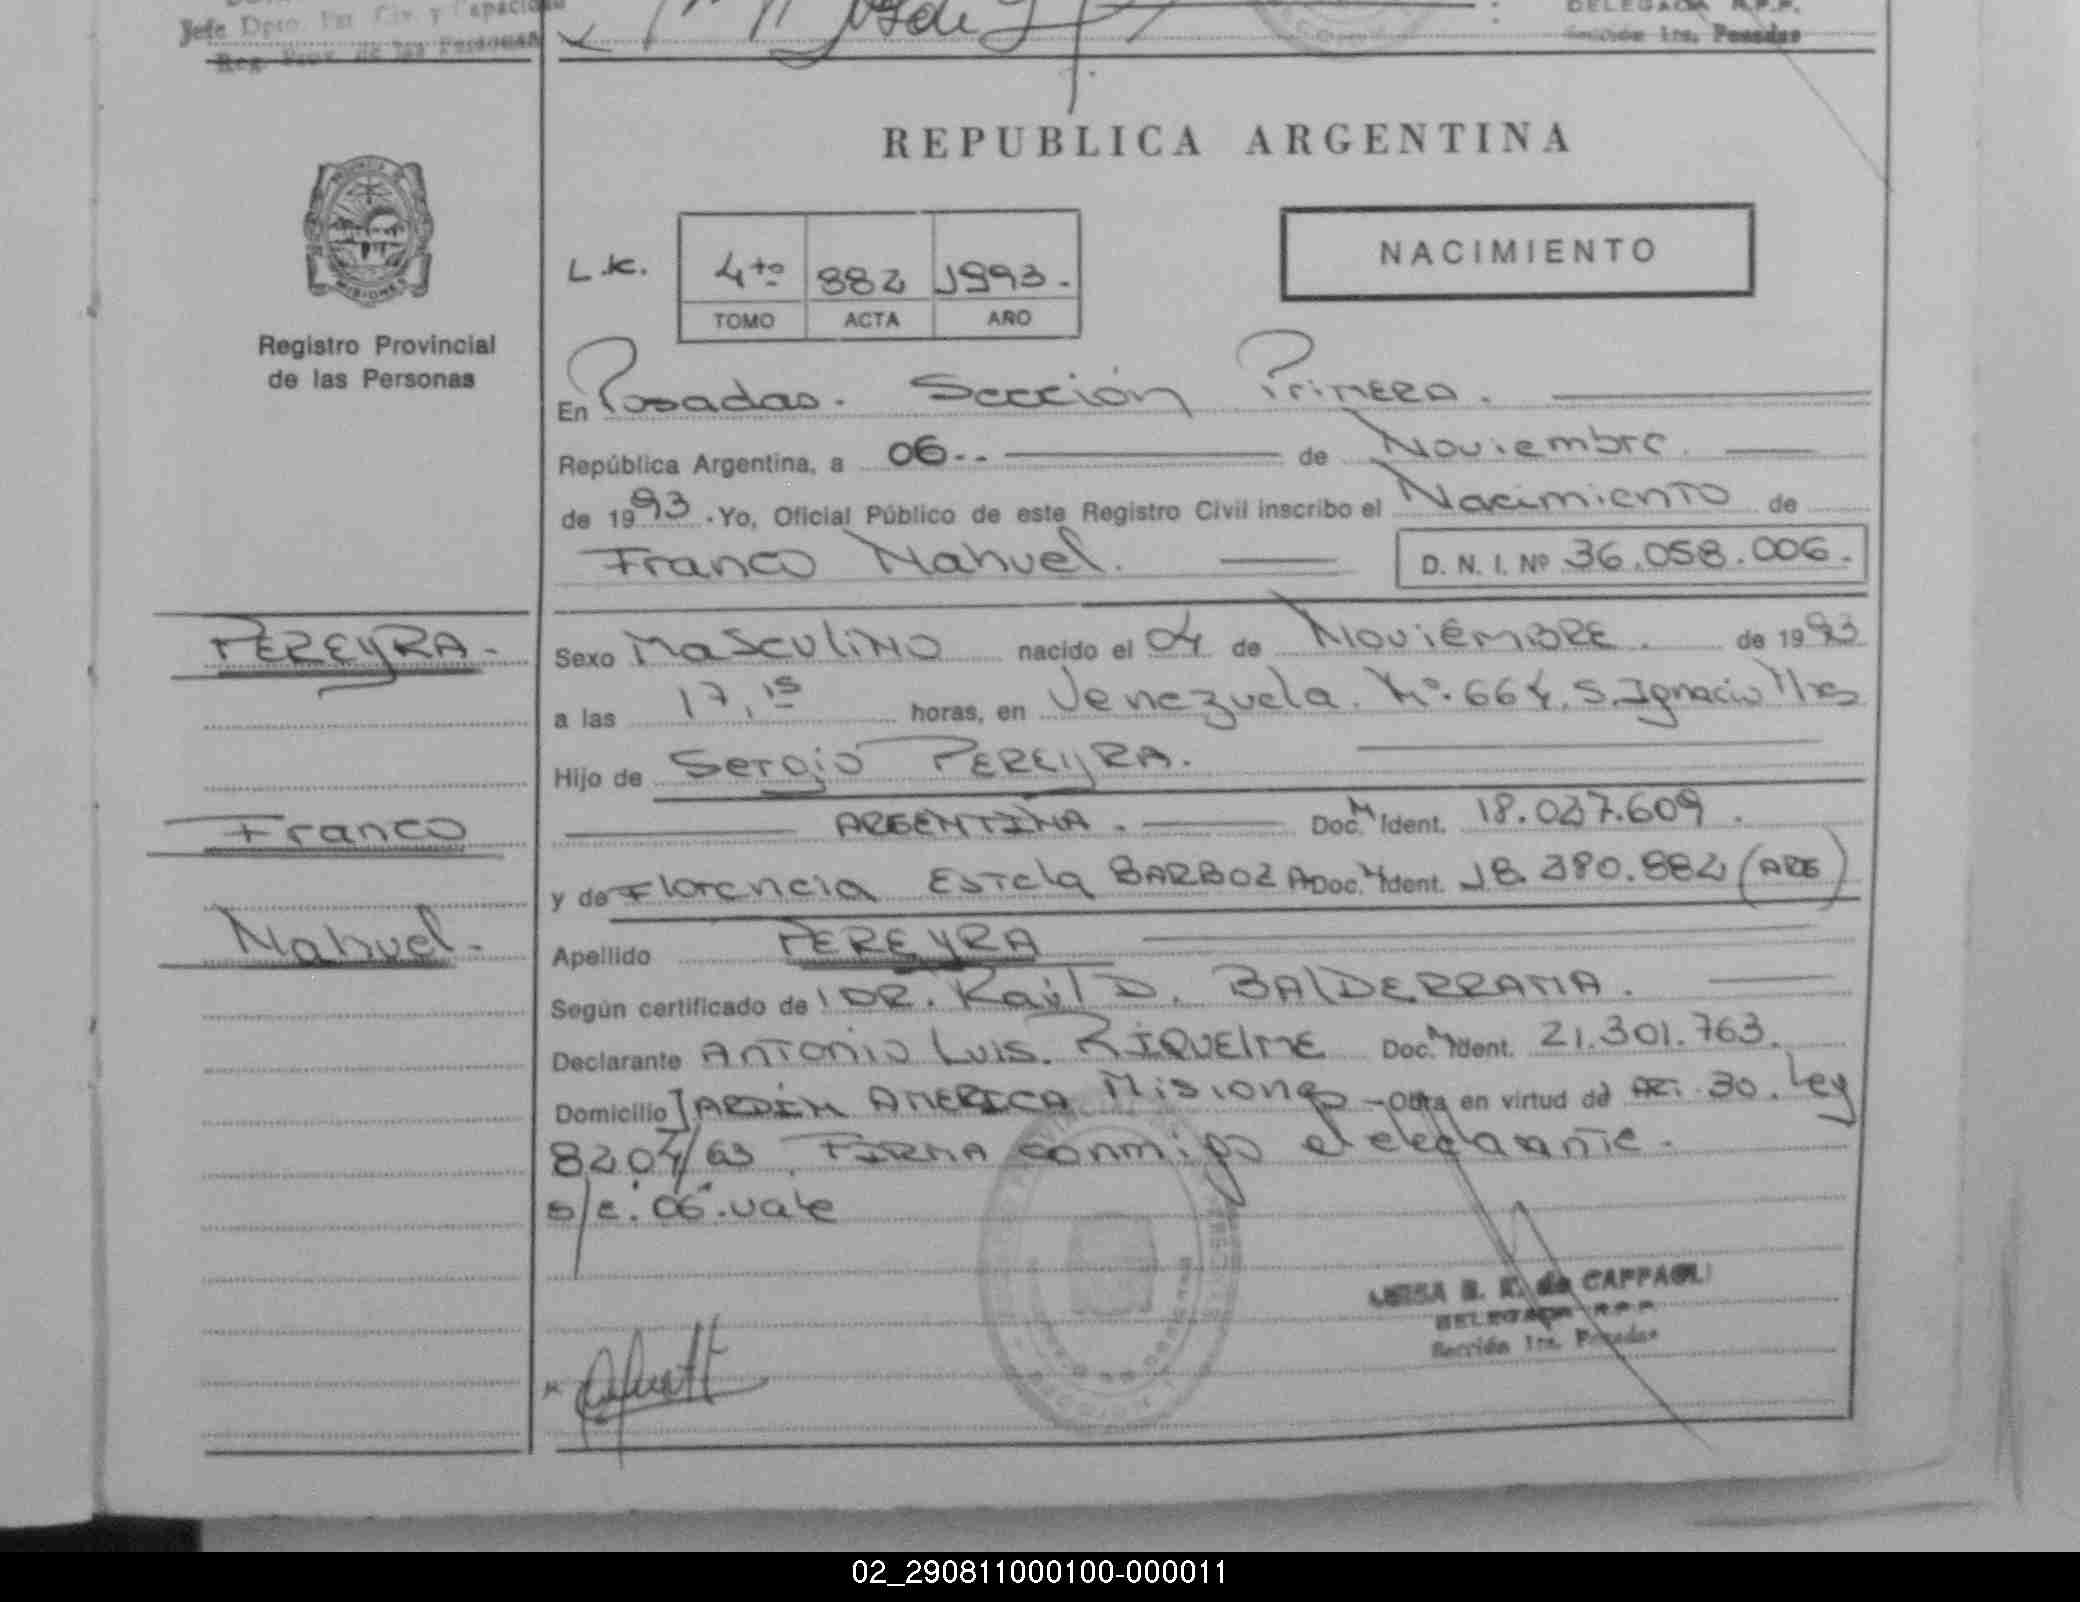 Jefe Dpto. Est. Civ. y Capacidad
Reg. Prov. de las Personas
DELEGADA R.P.P.
Sección 1ra. Posadas
REPUBLICA ARGENTINA
NACIMIENTO
L.K. 4to 882 1993.
TOMO ACTA AÑO
MISIONES
Registro Provincial
de las Personas
En Posadas. Sección Primera.
República Argentina, a 06.. de Noviembre.
de 1993. Yo, Oficial Público de este Registro Civil inscribo el Nacimiento de
Franco Nahuel. D. N. I. Nº 36.058.006.
PEREYRA.
Sexo Masculino nacido el 04 de NOVIEMBRE. de 1993
a las 17,15 horas, en Venezuela. Nº. 664, S. Ignacio Mnes
Hijo de Sergio PEREYRA.
Franco
ARGENTINA. Doc. N Ident. 18.037.609.
y de Florencia Estela BARBOZA Doc. N Ident. 18.380.882 (ARG)
Nahuel.
Apellido PEREYRA
Según certificado de DR. Raúl D. BALDERRAMA.
Declarante ANTONIO LUIS. RIQUELME Doc. N Ident. 21.301.763.
Domicilio JARDIN AMERICA Misiones - Obra en virtud de ART. 30. Ley
8204/63. FIRMA conmigo el declarante.
s/e: 06. vale
LUISA B. de CAPPAOLI
DELEGADA R.P.P.
Sección 1ra. Posadas
02_290811000100-000011